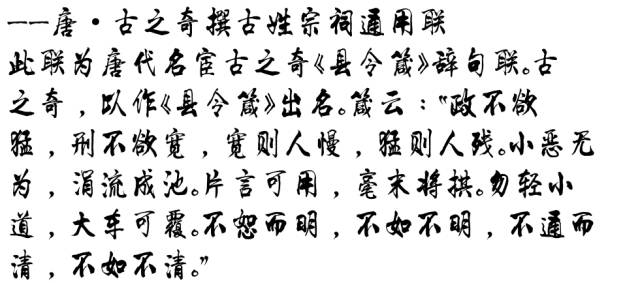 ——唐·古之奇撰古姓宗祠通用联
此联为唐代名宦古之奇《县令箴》辞句联。古
之奇，以作《县令箴》出名。箴云："政不欲
猛，刑不欲宽，宽则人慢，猛则人残。小恶无
为，涓流成池。片言可用，毫末将拱。勿轻小
道，大车可覆。不恕而明，不如不明，不通而
清，不如不清。"